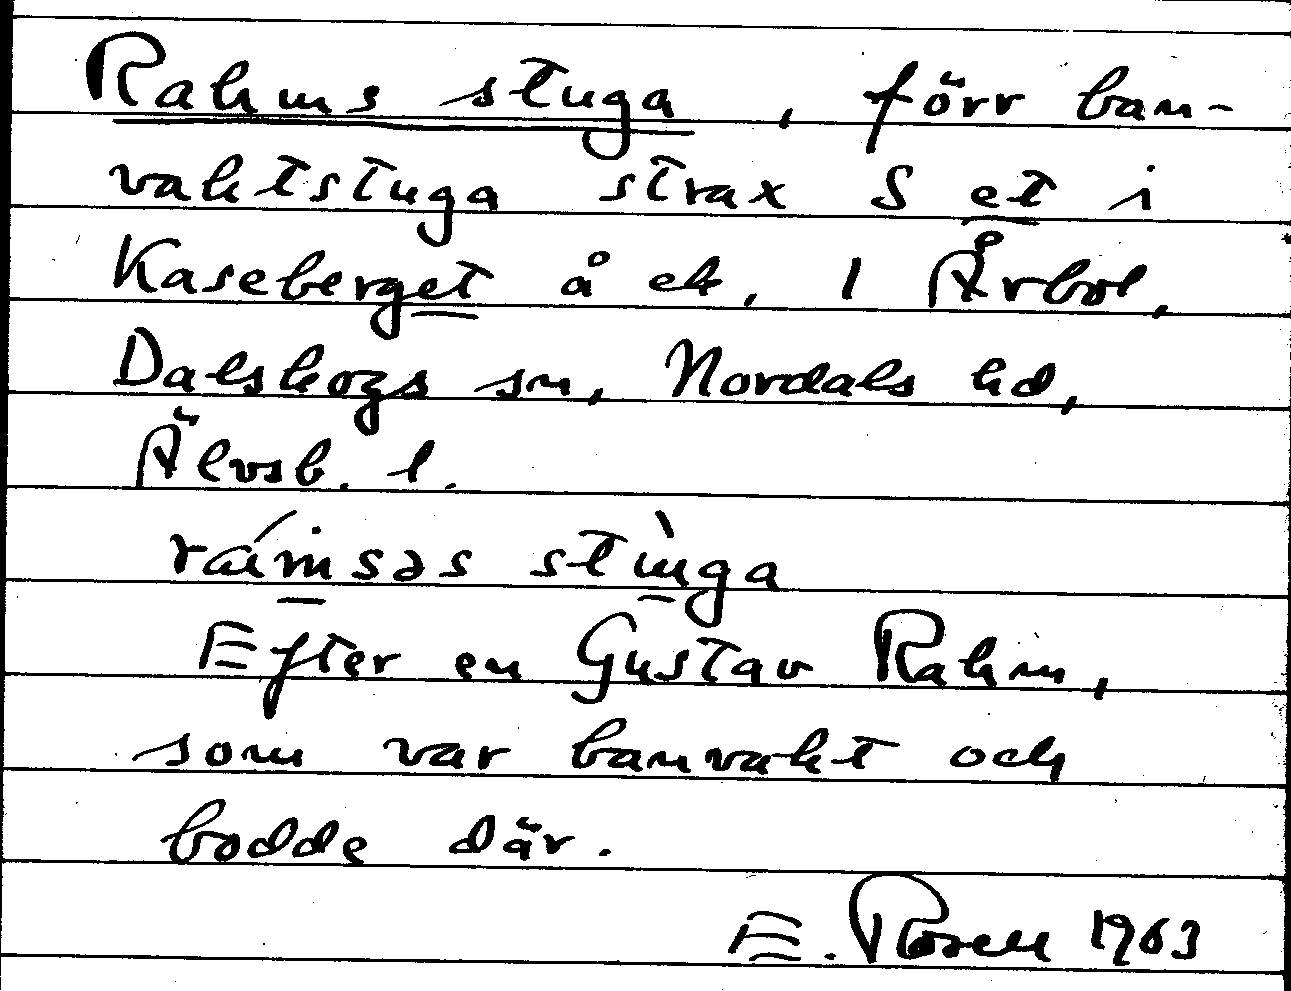 Rahms stuga, förr ban-
vaktstuga strax S et i
Kaseberget å ek. 1 Årbol,
Dalskogs sn, Nordals hd,
Älvsb. l.
Efter en Gustav Rahm,
som var banvakt och
bodde där.
E. Rosell 1963